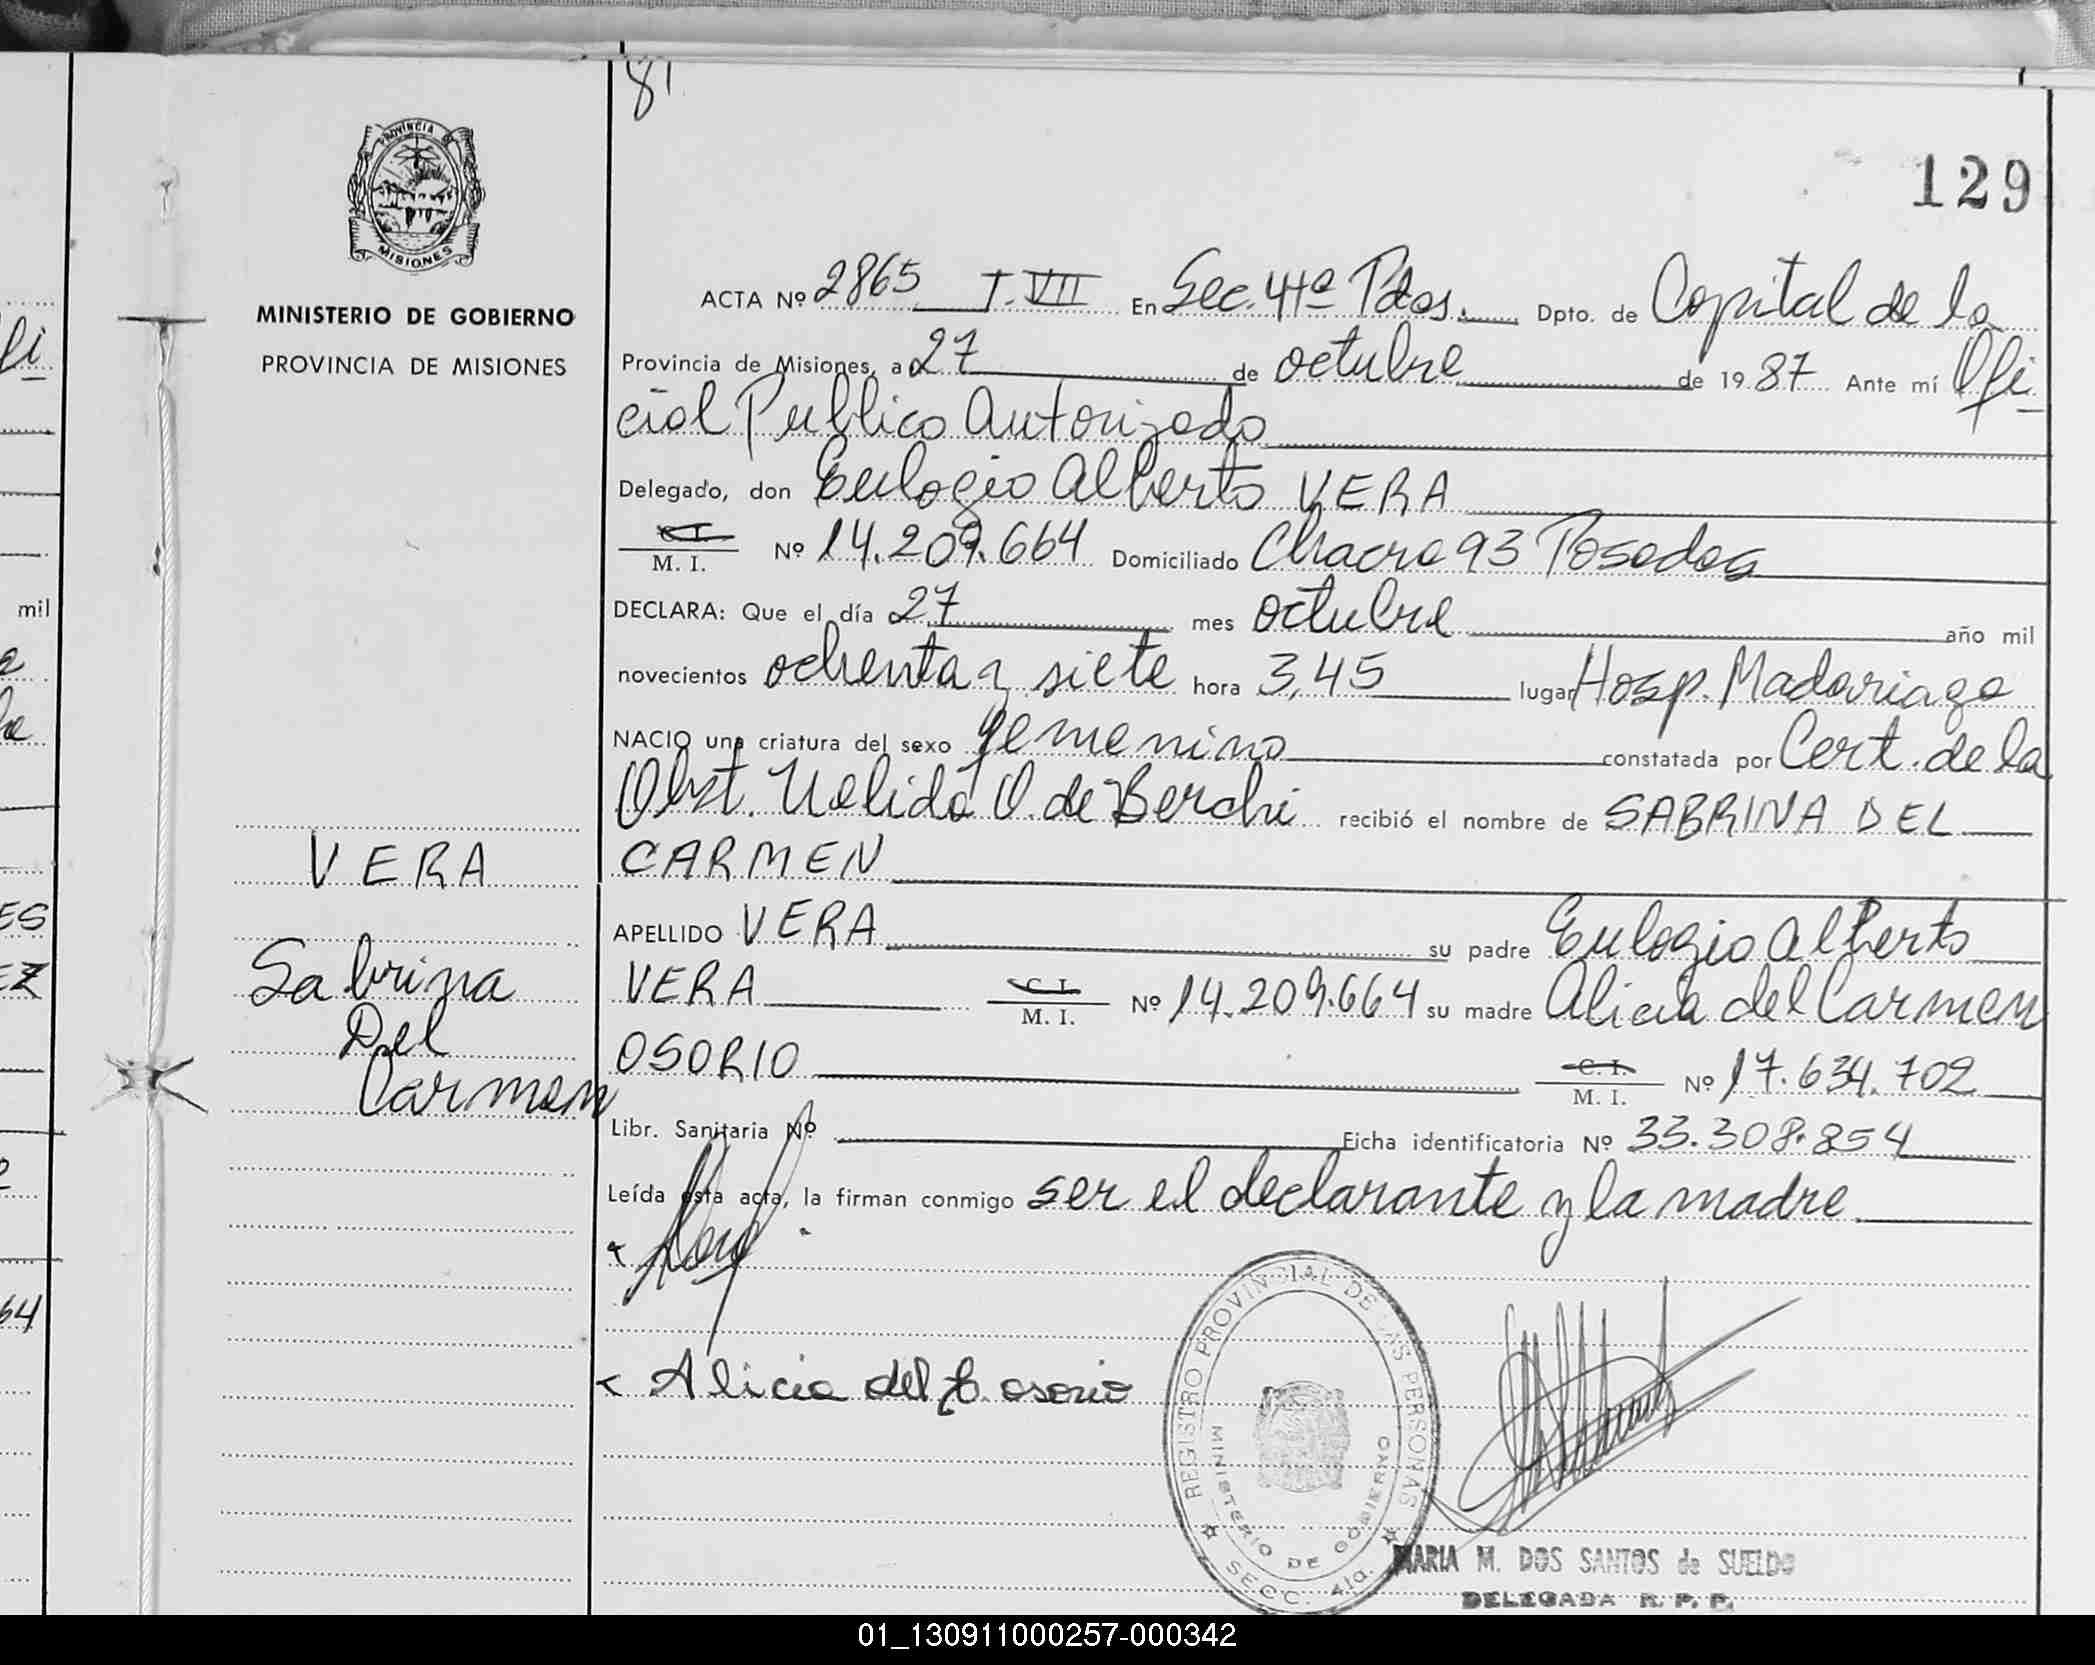 81
129
PROVINCIA DE
MISIONES
MINISTERIO DE GOBIERNO
PROVINCIA DE MISIONES
ACTA Nº 2865 T. VII En Sec. 4ta Pdas. Dpto. de Capital de la
Provincia de Misiones, a 27 de octubre de 1987 Ante mí Ofi
cial Publico Autorizado
Delegado, don Eulogio Alberto VERA
C.I.
M. I. Nº 14.209.664 Domiciliado Chacra 93 Posadas
DECLARA: Que el día 27 mes octubre año mil
novecientos ochenta y siete hora 3,45 lugar Hosp. Madariaga
NACIO una criatura del sexo femenino constatada por Cert. de la
Obst. Nelida O. de Berchi recibió el nombre de SABRINA DEL
CARMEN
APELLIDO VERA su padre Eulogio Alberto
VERA C I. M. I. Nº 14.209.664 su madre Alicia del Carmen
OSORIO C. I. M. I. Nº 17.634.702
Libr. Sanitaria Nº Ficha identificatoria Nº 33.308.854
Leída esta acta, la firman conmigo ser el declarante y la madre
Alicia del C. osorio
VERA
Sabrina
Del
Carmen
REGISTRO PROVINCIAL DE LAS PERSONAS
MINISTERIO DE GOBIERNO
SECC. 4ta.
MARIA M. DOS SANTOS de SUELDO
DELEGADA R. P. P.
li
mil
ES
EZ
64
01_130911000257-000342